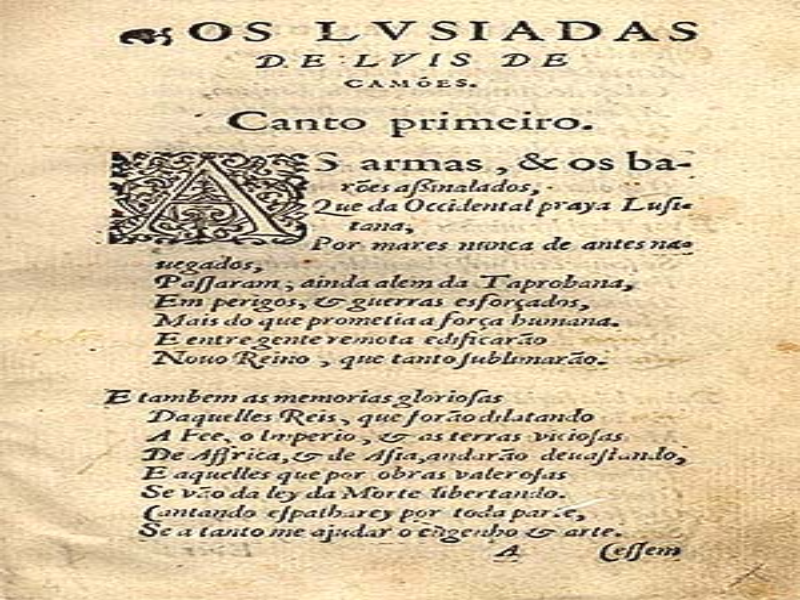 OS LVSIADAS
DE LVIS DE
CAMÕES.
Canto primeiro.
AS armas, & os ba-
rões aſsinalados,
Que da Occidental praya Luſi-
tana,
Por mares nunca de antes na-
uegados,
Paſſaram, ainda alem da Taprobana,
Em perigos, & guerras esforçados,
Mais do que prometia a força humana.
E entre gente remota edificarão
Nouo Reino, que tanto ſublimarão.
E tambem as memorias glorioſas
Daquelles Reis, que forão dilatando
A Fee, o Imperio, & as terras vicioſas
De Affrica, & de Aſia, andarão deuaſtando,
E aquelles que por obras valeroſas
Se vão da ley da Morte libertando.
Cantando eſpalharey por toda parte,
Se a tanto me ajudar o engenho & arte.
A Ceſſem